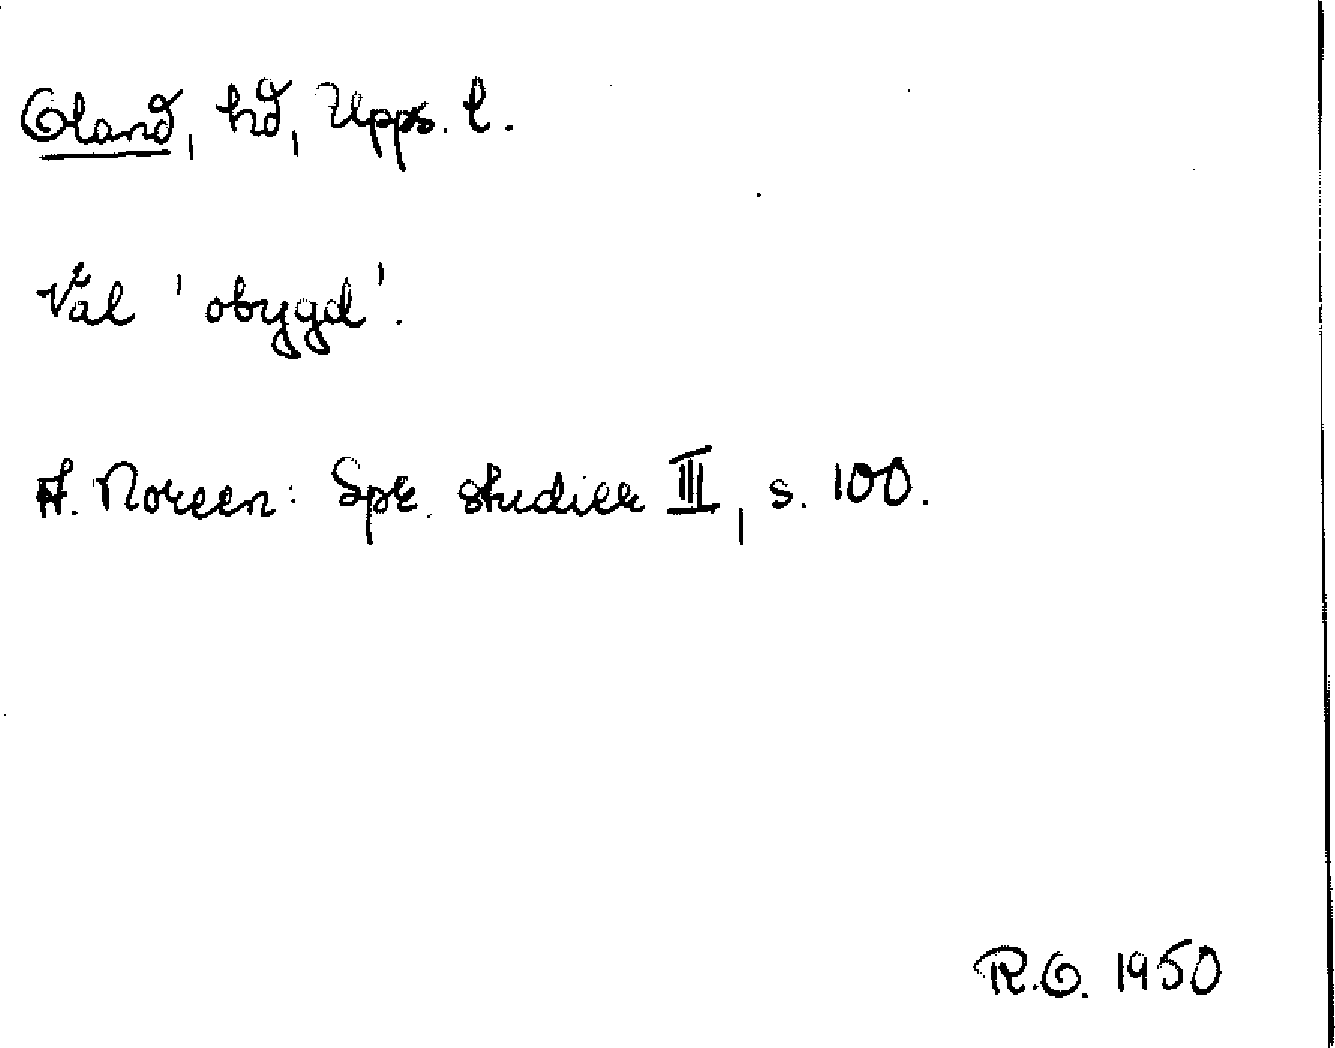 Oland, hd, Upps. l.
Väl 'obygd'.
A. Noreen: Spr. studier III, s. 100.
R.O. 1950